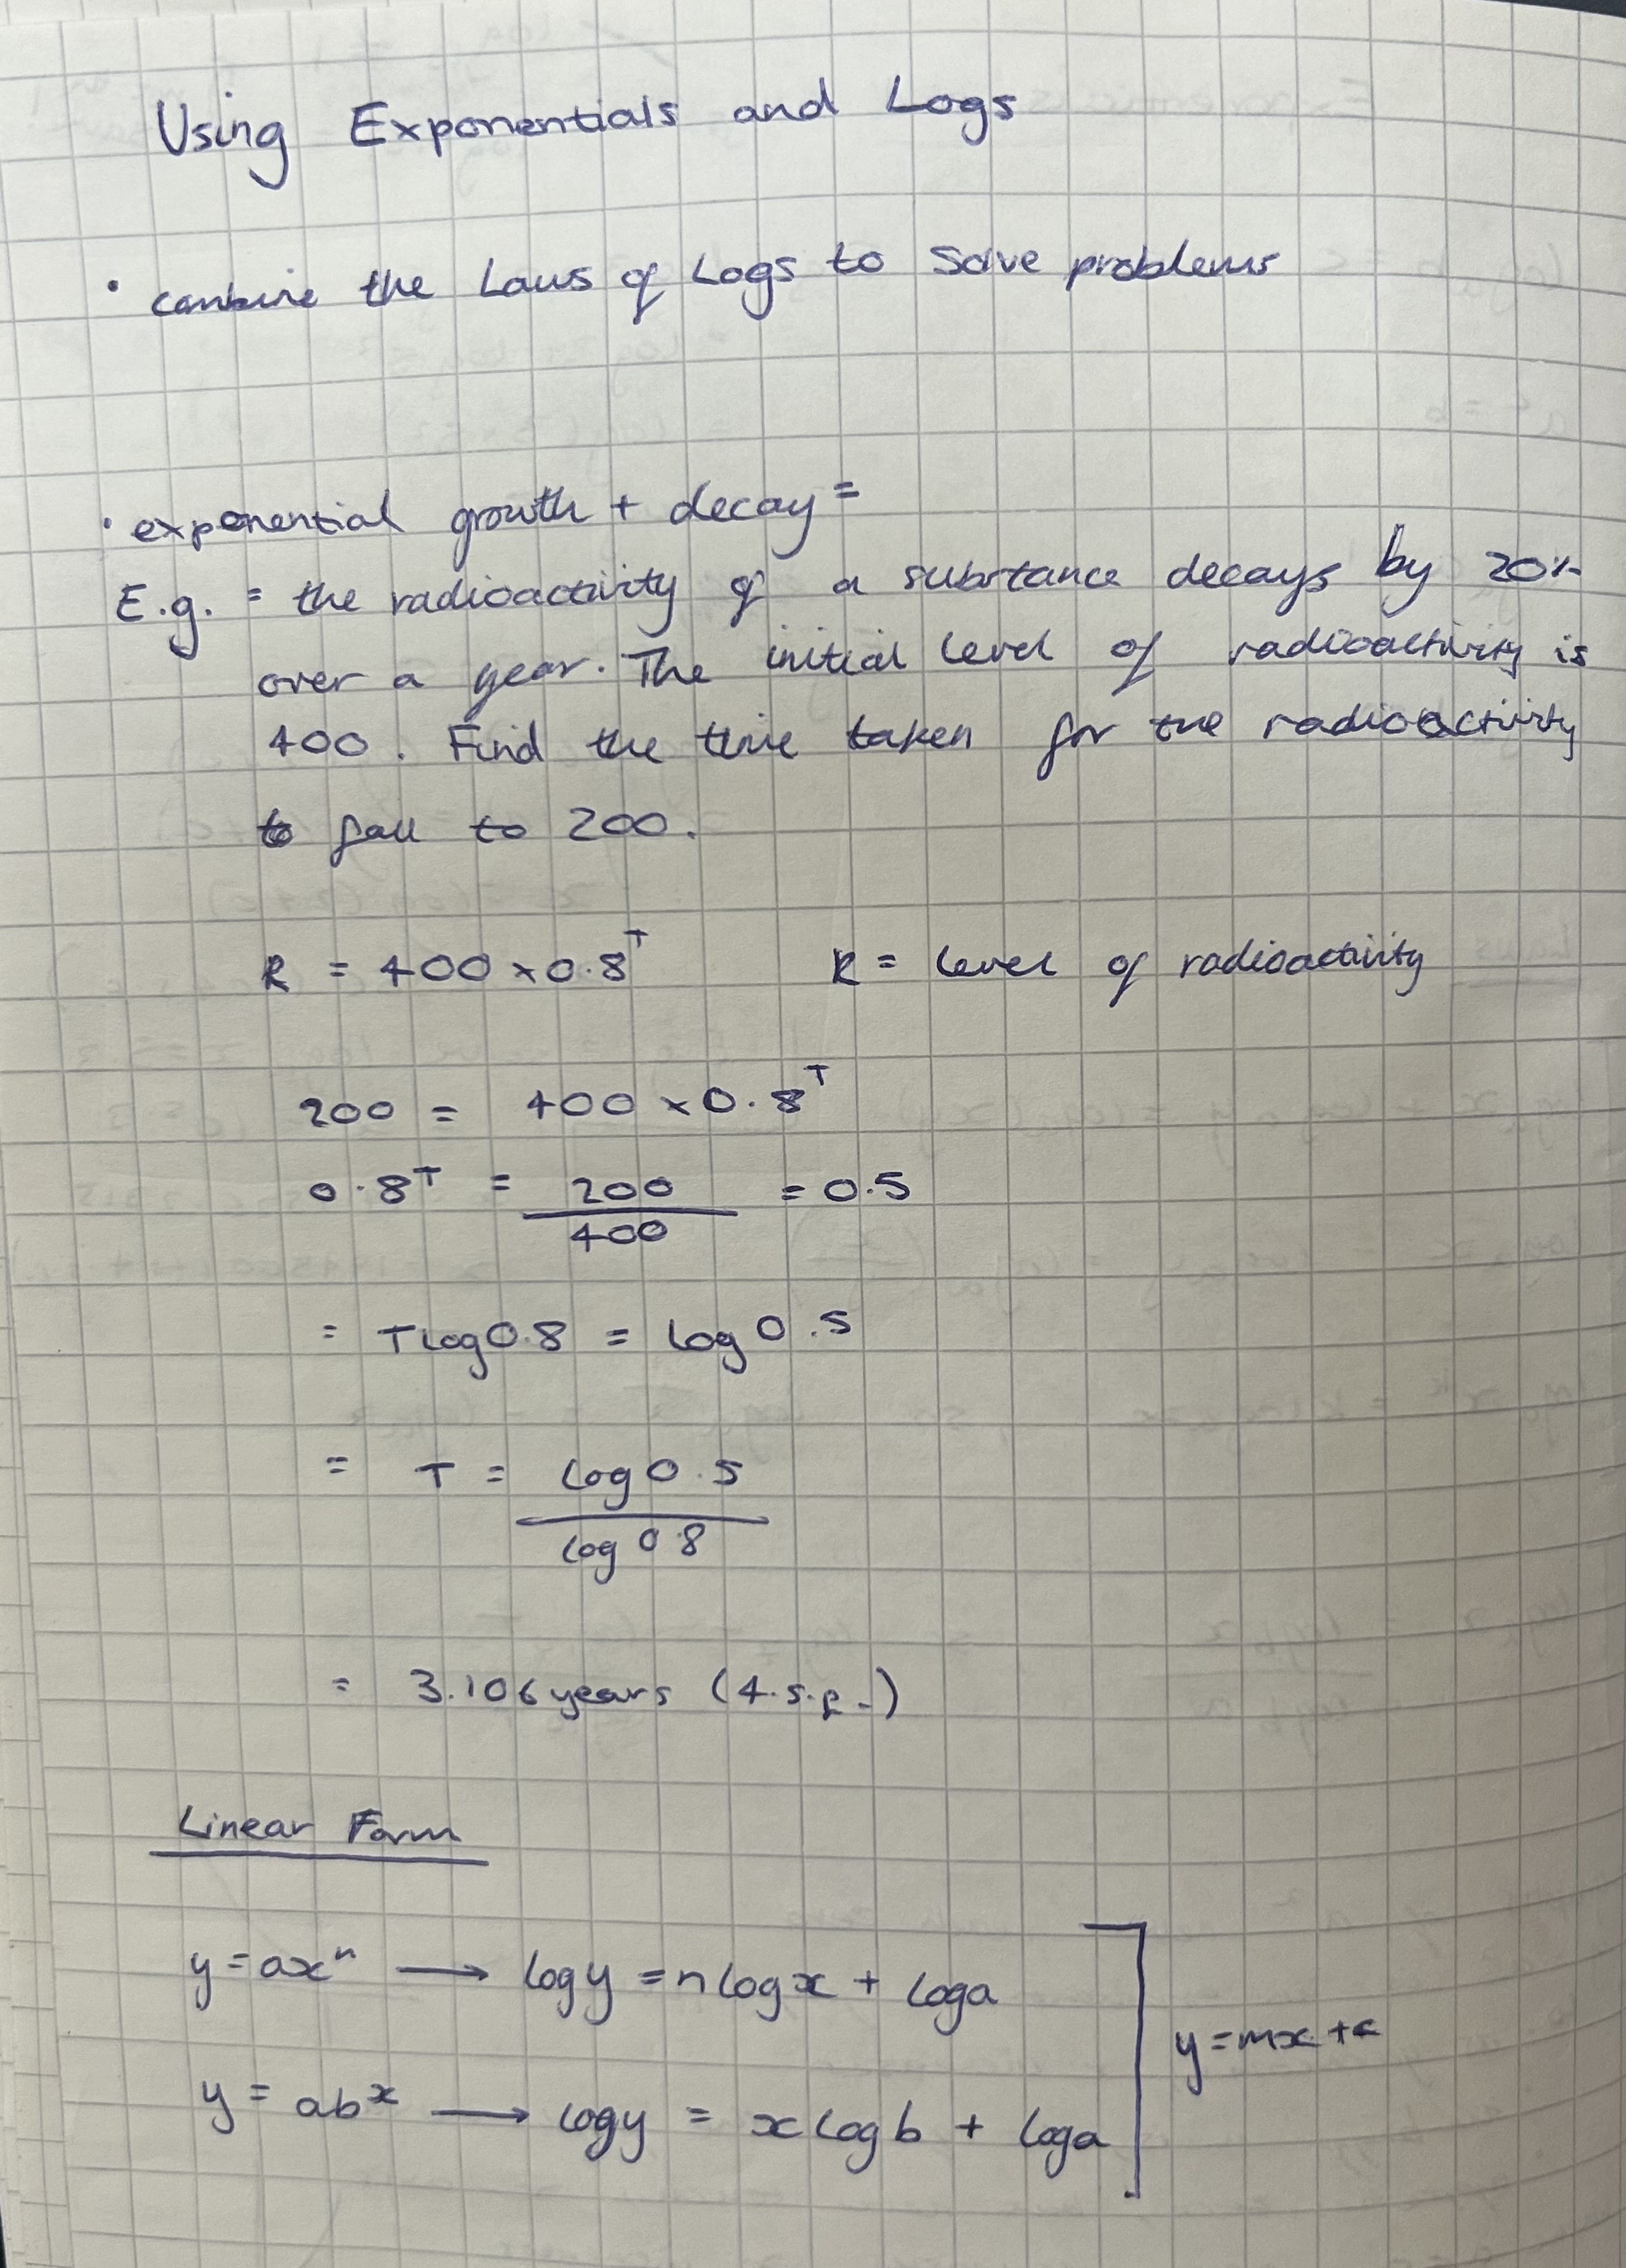 Using Exponentials and Logs
• combine the Laws of Logs to solve problems
• exponential growth + decay =
E.g. = the radioactivity of a substance decays by 20%
over a year. The initial level of radioactivity is
400. Find the time taken for the radioactivity
to fall to 200.
R = 400 × 0.8^T R = level of radioactivity
200 = 400 × 0.8^T
0.8^T = 200/400 = 0.5
= Tlog0.8 = log0.5
= T = log0.5/log0.8
= 3.106years (4.s.f.)
Linear Form
y=ax^n → logy = nlogx + loga
y=mx+c
y = ab^x → logy = xlogb + loga